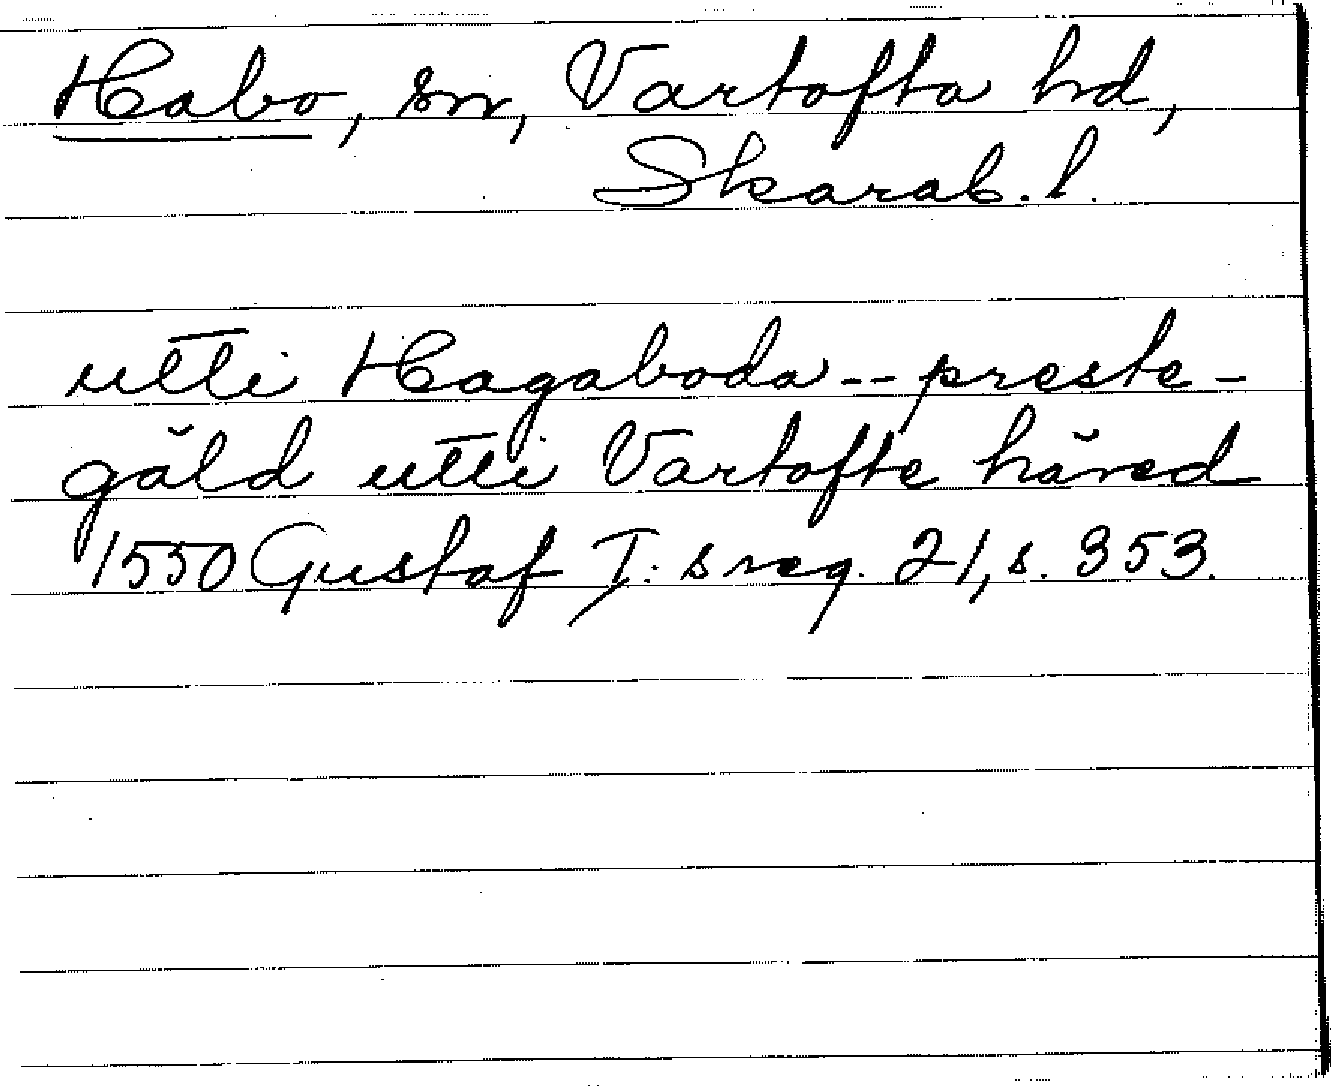 Habo, sn, Vartofta hd,
Skarab. l.
utti Hagaboda -- preste-
gäld utti Vartofte häred
1550 Gustaf I:s reg. 21, s. 353.